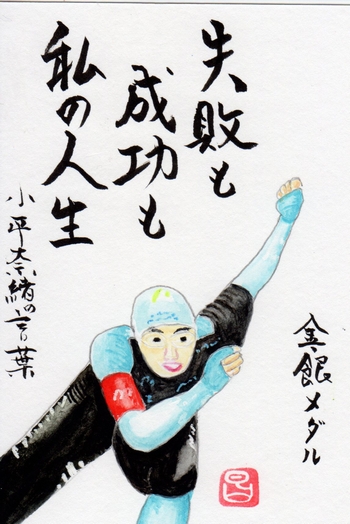 失敗も
成功も
私の人生
小平奈緒の言葉
金銀メダル